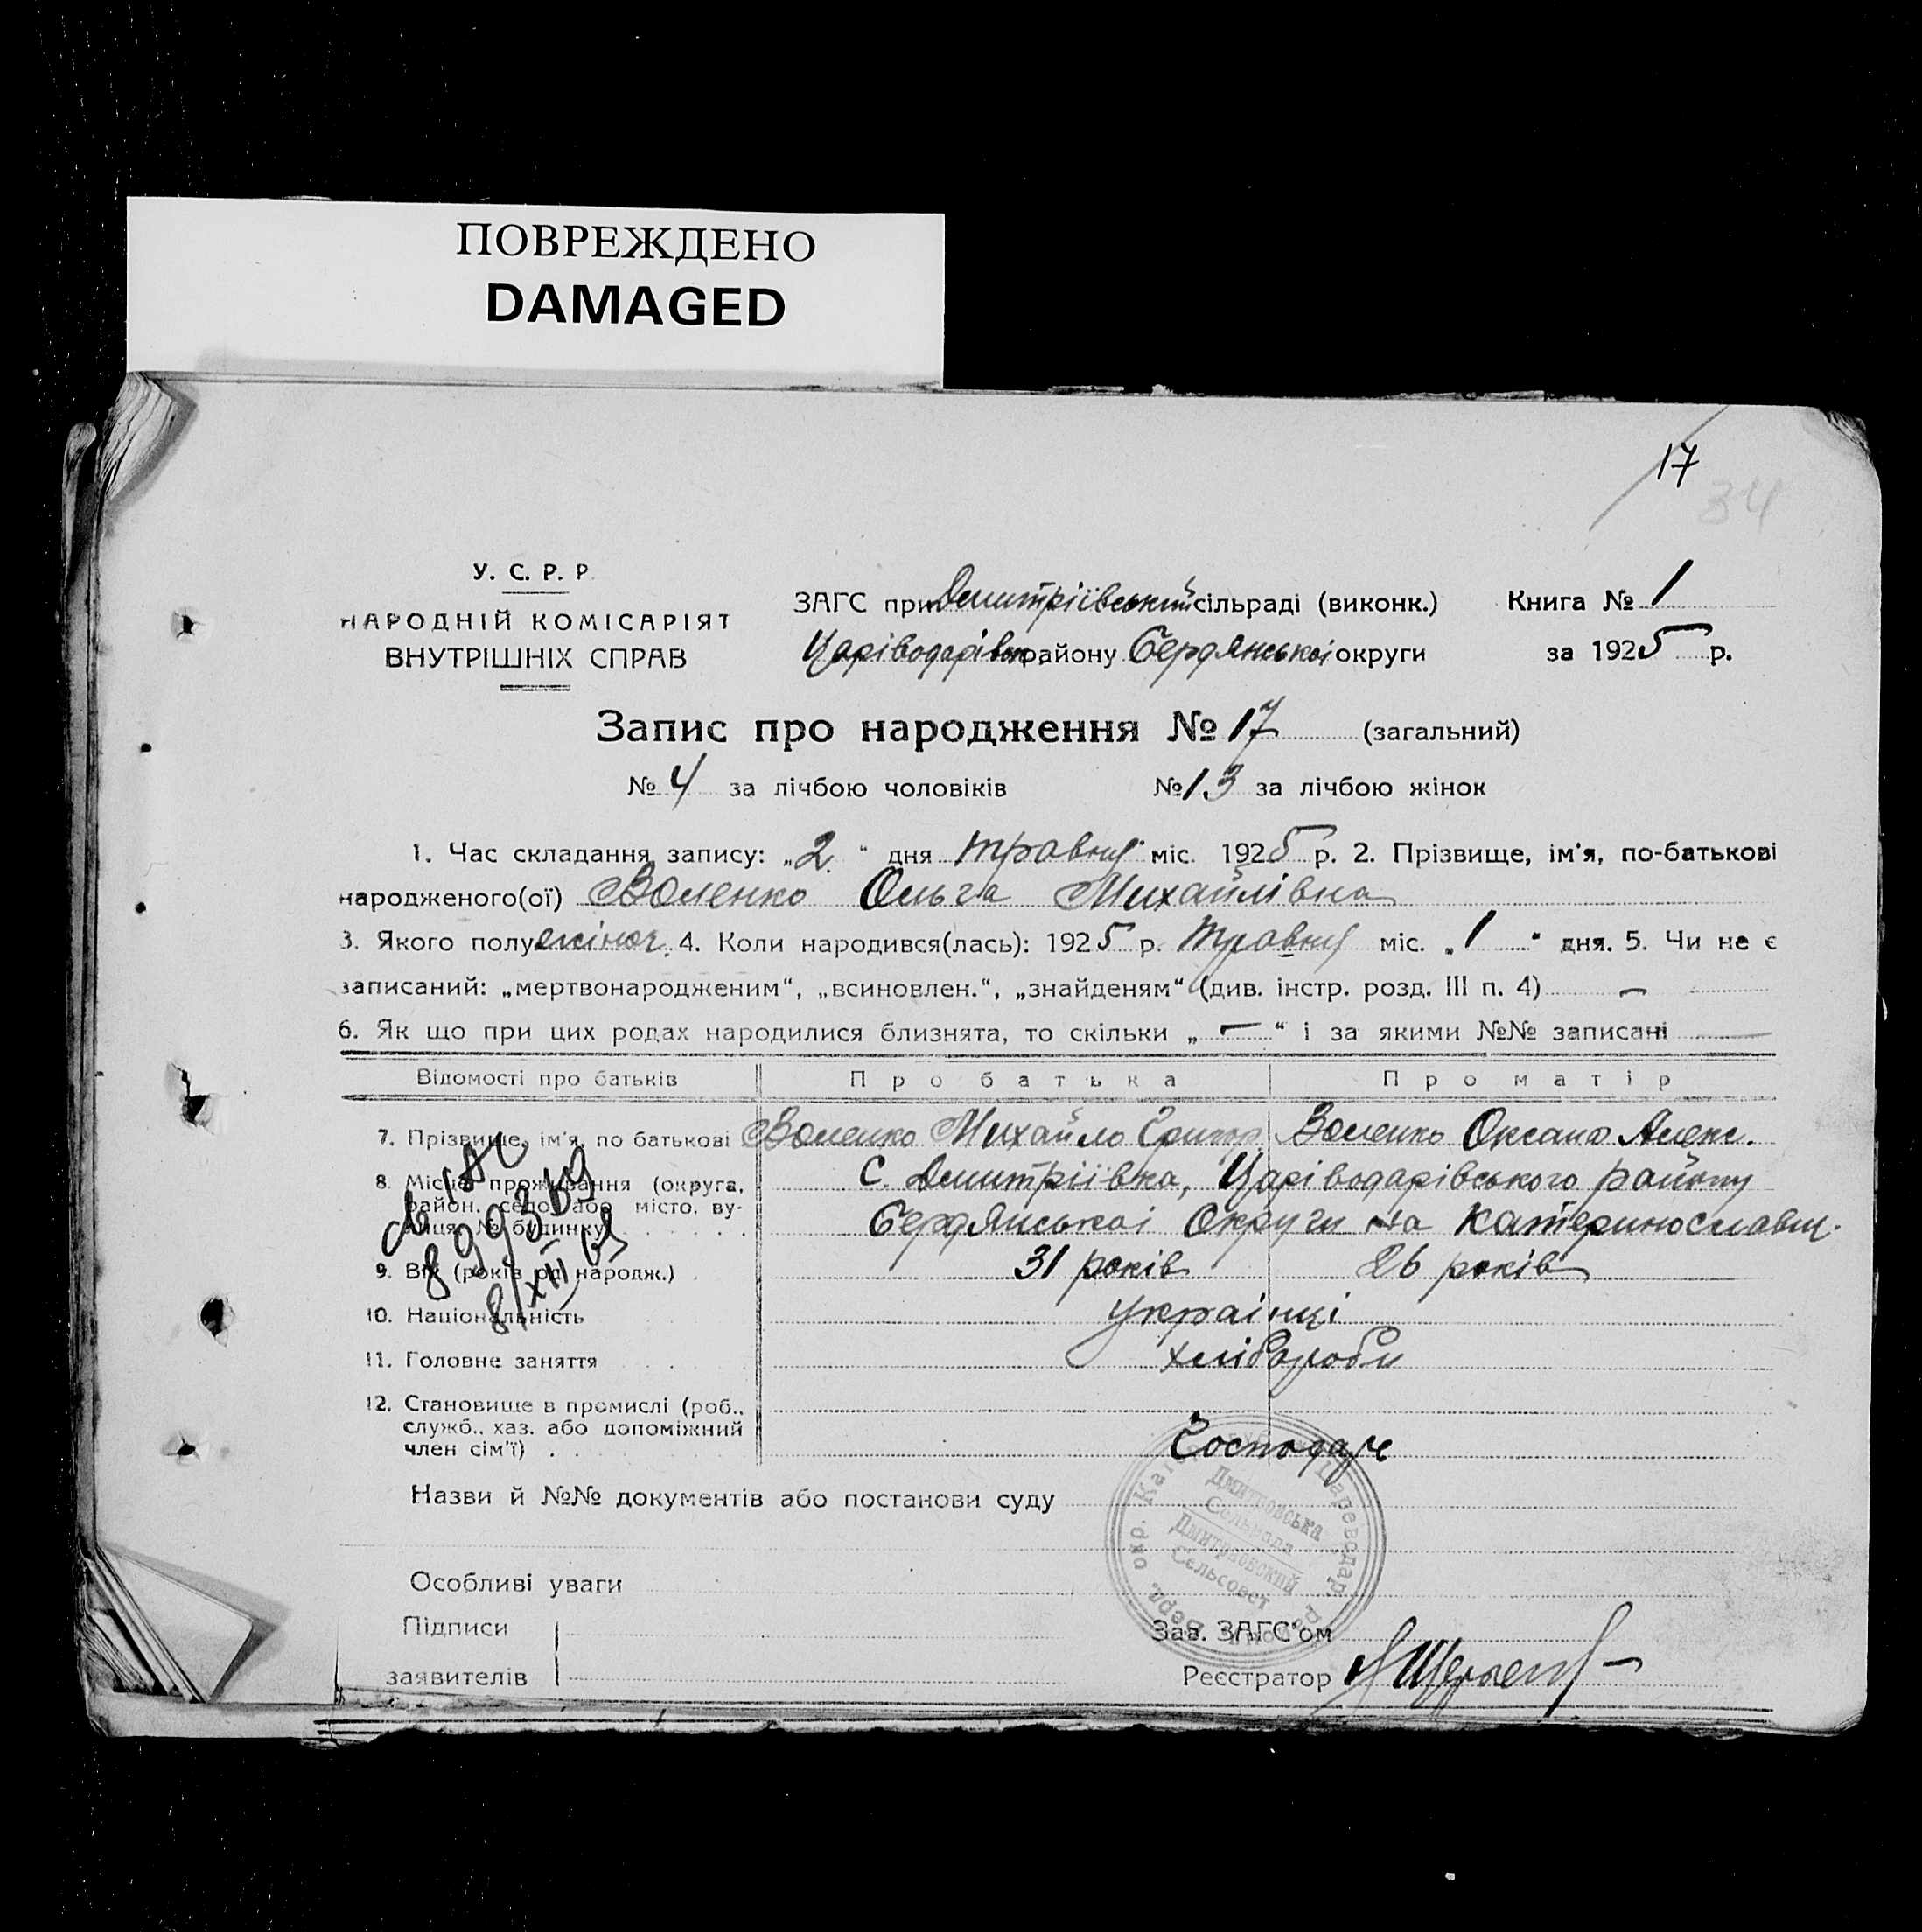 ПОВРЕЖДЕНО
DAMAGED
17
34
У. С. Р. Р.
НАРОДНІЙ КОМІСАРІЯТ
ВНУТРІШНІХ СПРАВ
ЗАГС при Дмитріївський сільраді (виконк.)
Царіводарівськ району Бердянськоі округи
Книга № 1
за 1925 р.
Запис про народження № 17 (загальний)
№ 4 за лічбою чоловіків № 13 за лічбою жінок
1. Час складання запису: „2“ дня травня міс. 1925 р. 2. Прізвище, ім'я, по-батькові
народженого(ої) Воленко Ольга Михайлівна
3. Якого полу жіноч. 4. Коли народився(лась): 1925 р. травня міс. „1“ дня. 5. Чи не є
записаний: „мертвонародженим“, „всиновлен.“, „знайденям“ (див. інстр. розд. III п. 4) –
6. Як що при цих родах народилися близнята, то скільки „–“ і за якими №№ записані —
Відомості про батьків Про батька Про матір
7. Прізвище, ім'я, по батькові Воленко Михайло Григор Воленко Оксана Алекс.
8. Місце проживання (округа, С. Дмитріївка, Царіводарівського району
район, село або місто, ву-
лиця, № будинку) Бердянськоі Округи на Катеринославщ.
9. Вік (років од народж.) 31 років 26 років
899369
8/XII 69
10. Національність украінці
11. Головне заняття хлібороби
12. Становище в промислі (роб.,
служб., хаз. або допоміжний
член сім'ї) Господарі
Назви й №№ документів або постанови суду
Дмитровська
Сельрада
Дмитровский
Сельсовет
Особливі уваги
Підписи
заявителів
Зав. ЗАГС'ом
Реєстратор